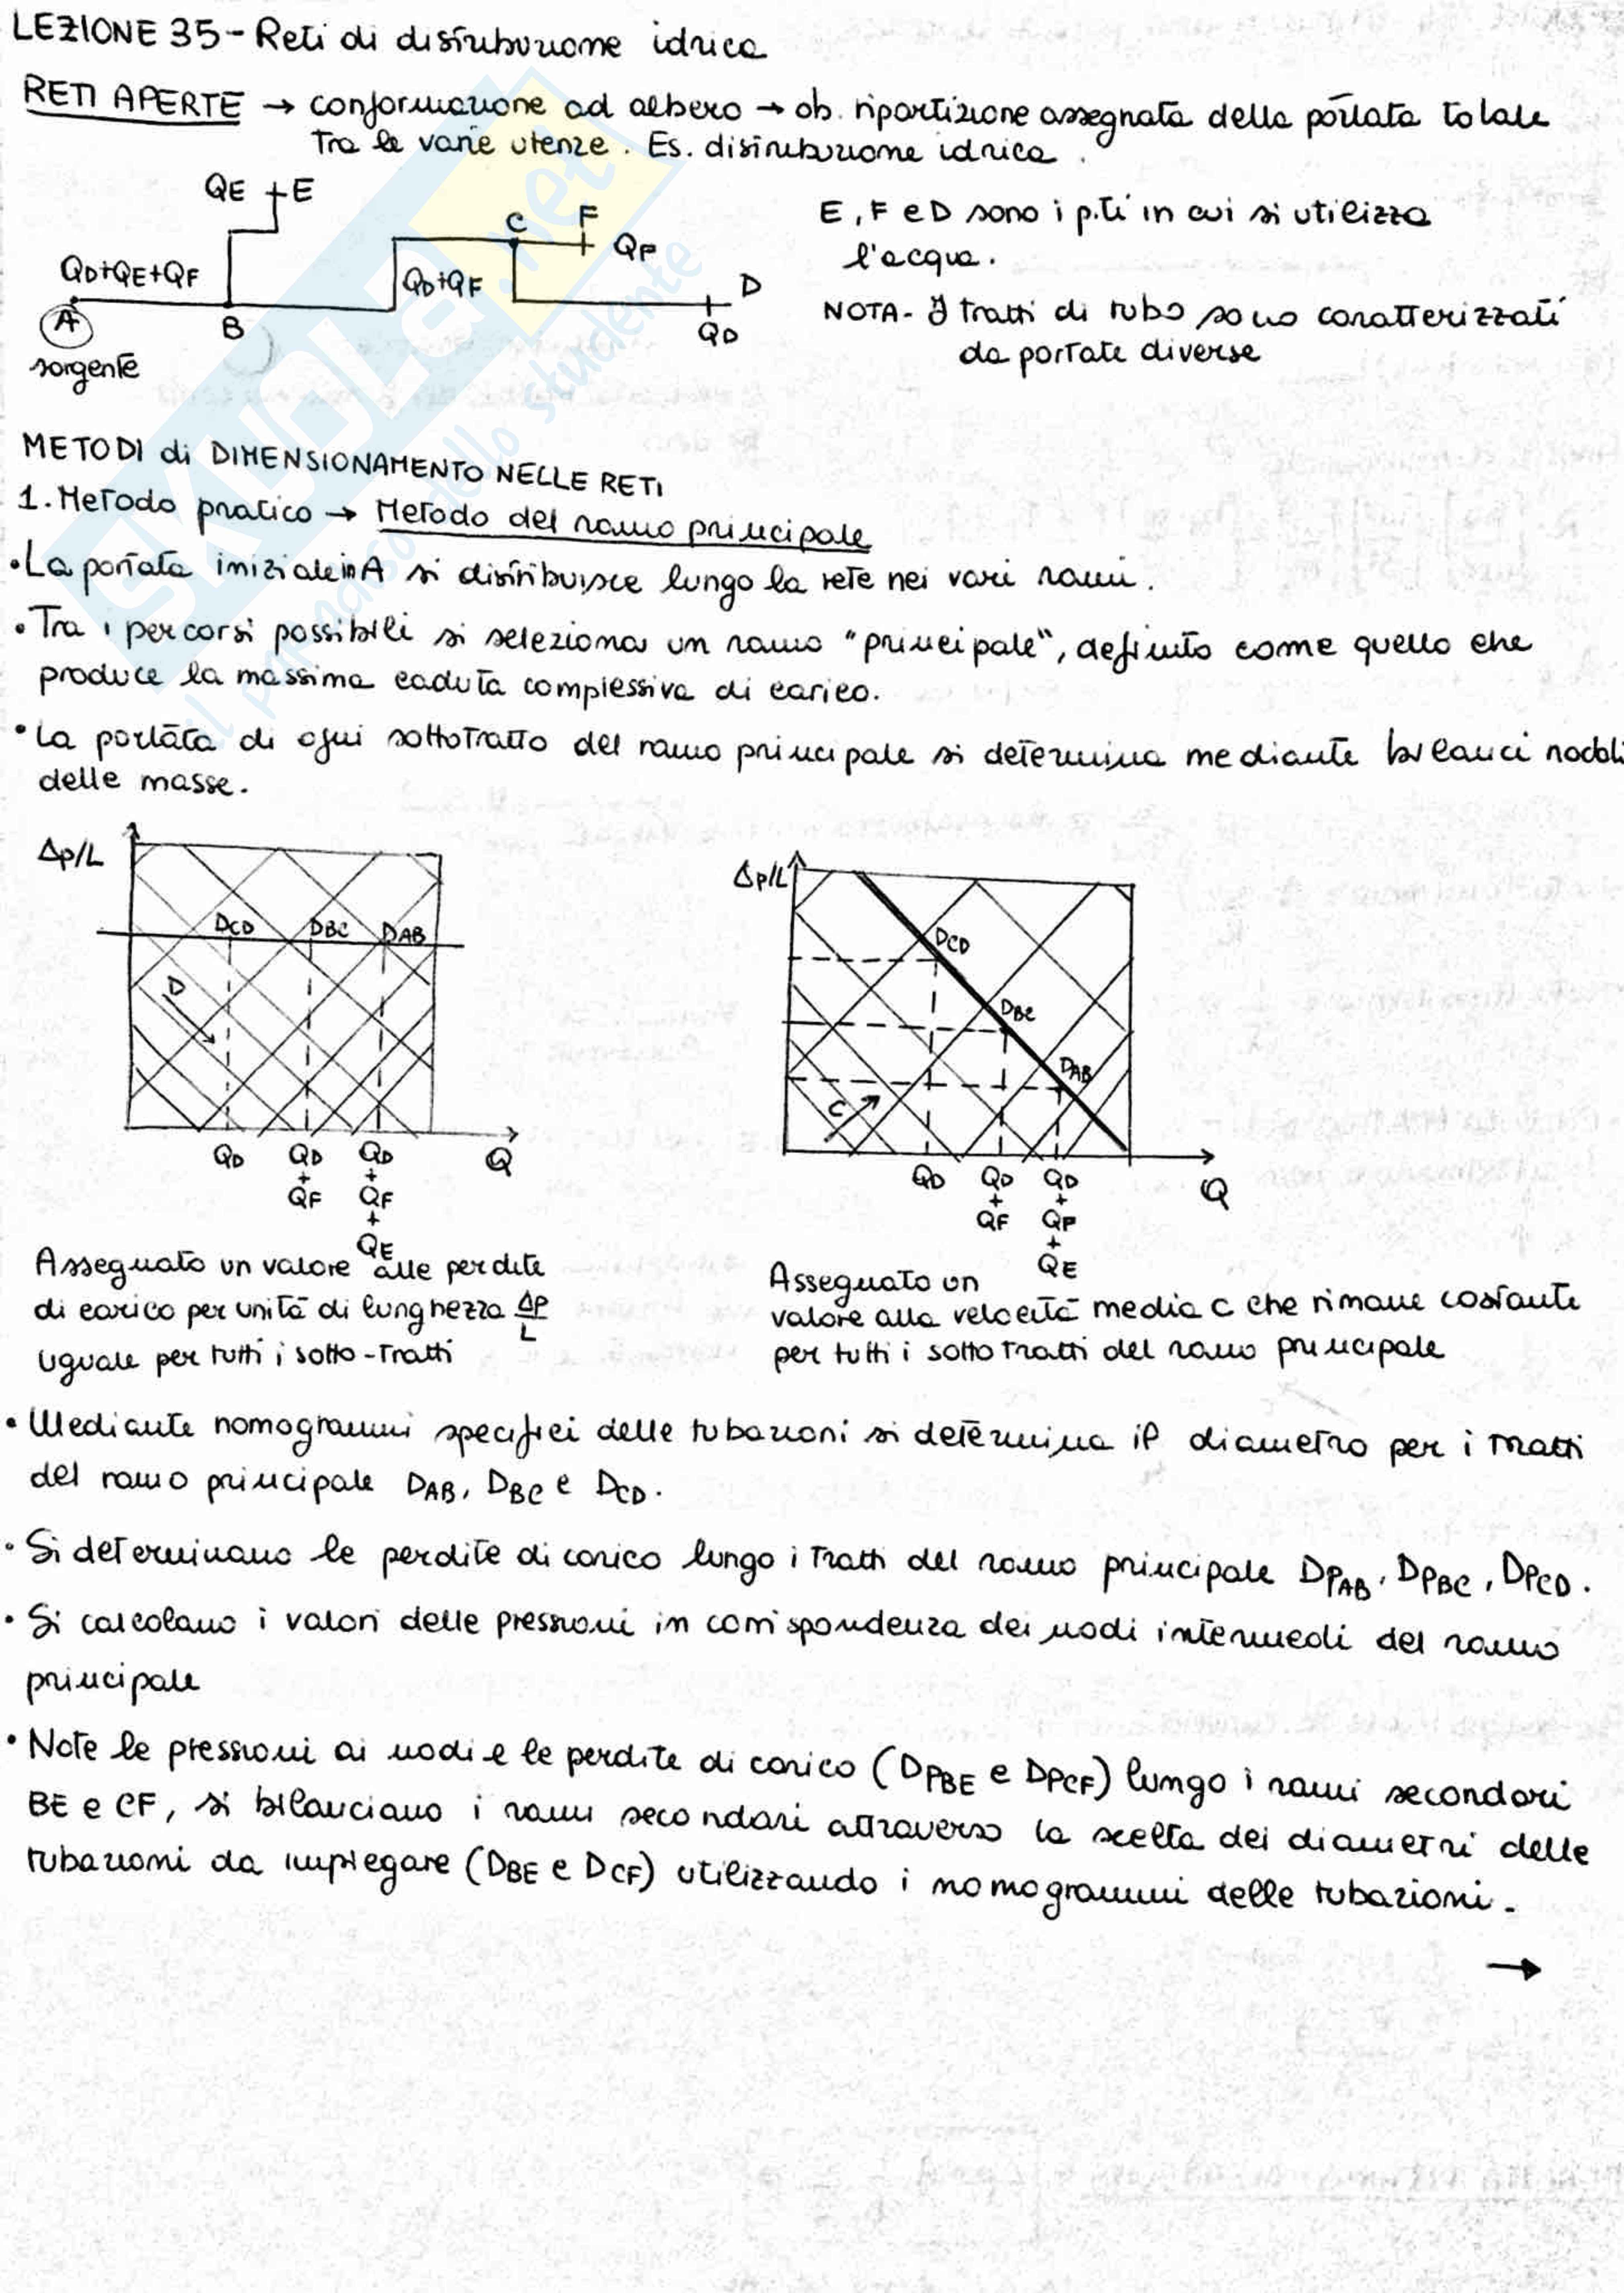 LEZIONE 35 - Reti di distribuzione idrica
RETI APERTE → conformazione ad albero → ob. ripartizione assegnata della portata totale
Tra le varie utenze. Es. distribuzione idrica.
QE E
C F
QF
QD+QE+QF
QD+QF
D
A
B
QD
sorgente
E, F e D sono i p.ti in cui si utilizza
l'acqua.
NOTA- I tratti di tubo sono caratterizzati
da portate diverse
METODI di DIMENSIONAMENTO NELLE RETI
1. Metodo pratico → Metodo del ramo principale
• La portata iniziale in A si distribuisce lungo la rete nei vari rami.
• Tra i percorsi possibili si seleziona un ramo "principale", definito come quello che
produce la massima caduta complessiva di carico.
• La portata di ogni sottotratto del ramo principale si determina mediante bilanci nodali
delle masse.
Δp/L
DCD DBC DAB
D
QD QD QD Q
+ +
QF QF
+
QE
Δp/L
DCD
DBC
DAB
C
QD QD QD Q
+ +
QF QF
+
QE
Assegnato un valore alle perdite
di carico per unità di lunghezza Δp/L
uguale per tutti i sotto-tratti
Assegnato un
valore alla velocità media c che rimane costante
per tutti i sotto tratti del ramo principale
• Mediante nomogrammi specifici delle tubazioni si determina il diametro per i tratti
del ramo principale DAB, DBC e DCD.
• Si determinano le perdite di carico lungo i tratti del ramo principale DPAB, DPBC, DPCD.
• Si calcolano i valori delle pressioni in corrispondenza dei nodi intermedi del ramo
principale
• Note le pressioni ai nodi e le perdite di carico (DPBE e DPCF) lungo i rami secondari
BE e CF, si bilanciano i rami secondari attraverso la scelta dei diametri delle
tubazioni da impiegare (DBE e DCF) utilizzando i nomogrammi delle tubazioni.
→
SKUOLA.net
il paradiso dello studente